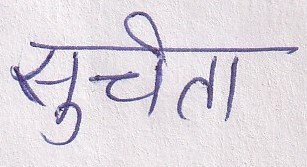 सुचेता